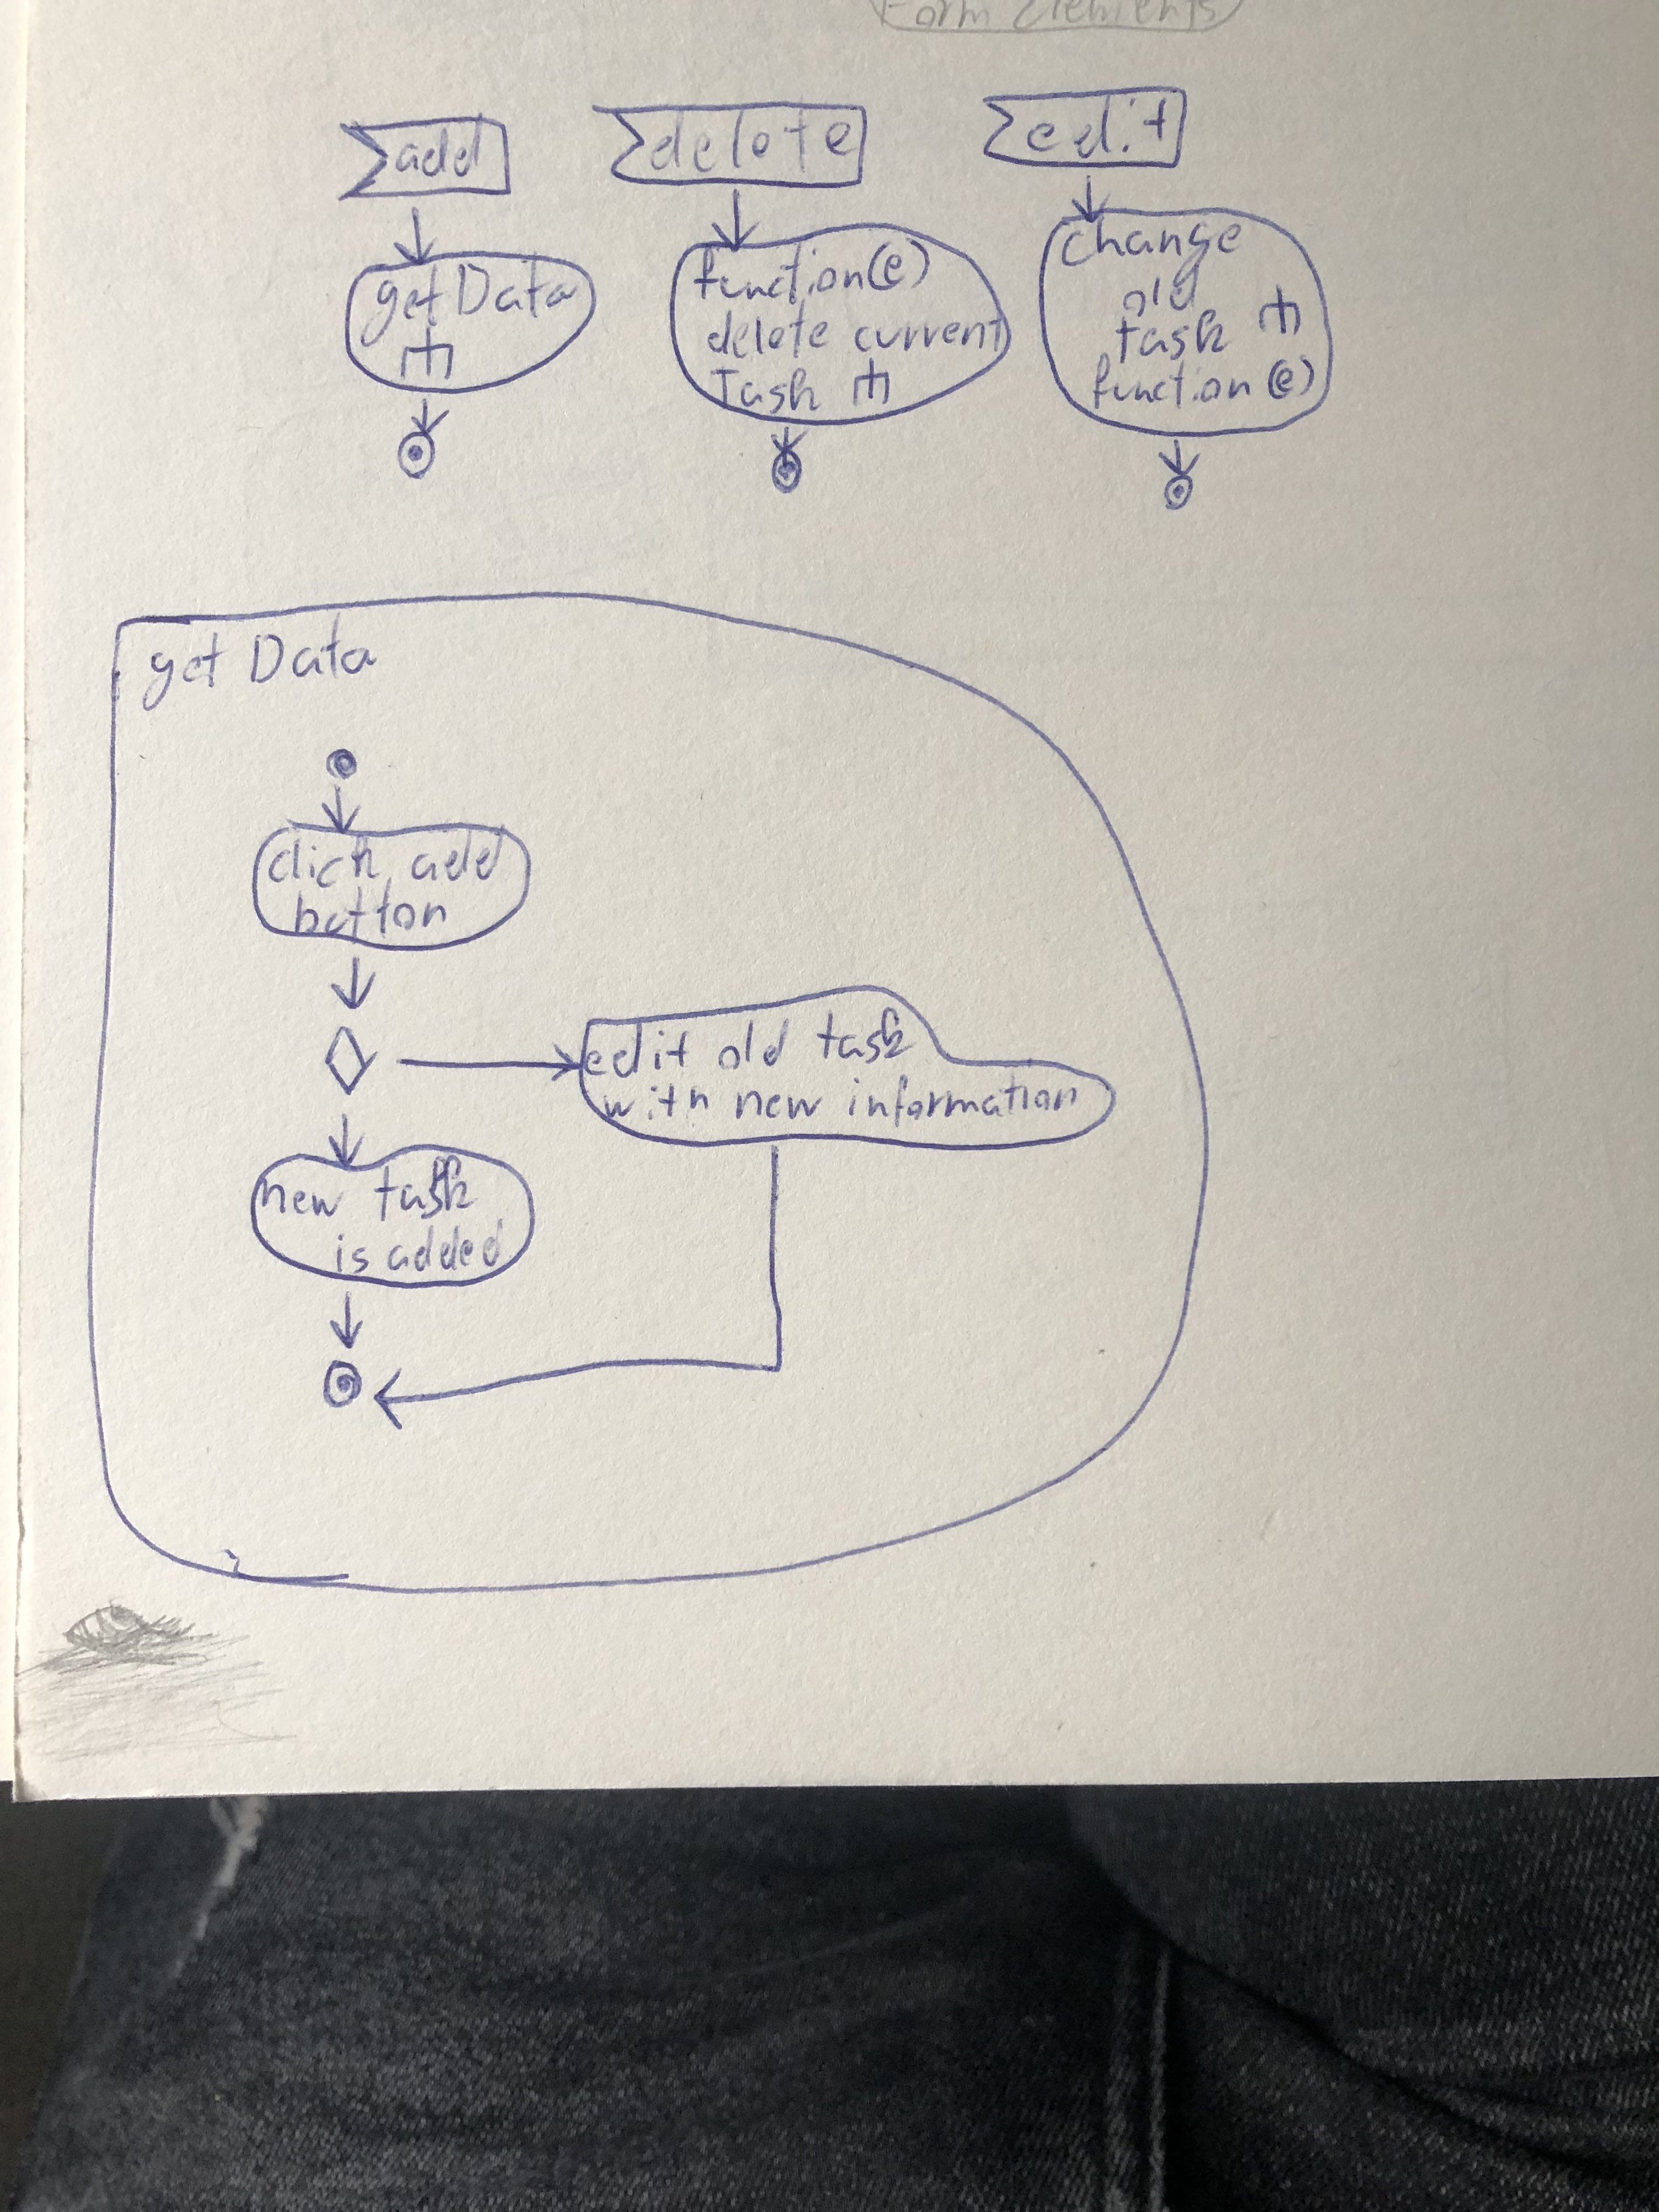 Form Elements
add
delete
edit
getData
function(e)
delete current
Task
change
old
task
function(e)
get Data
click add
button
edit old task
with new information
new task
is added